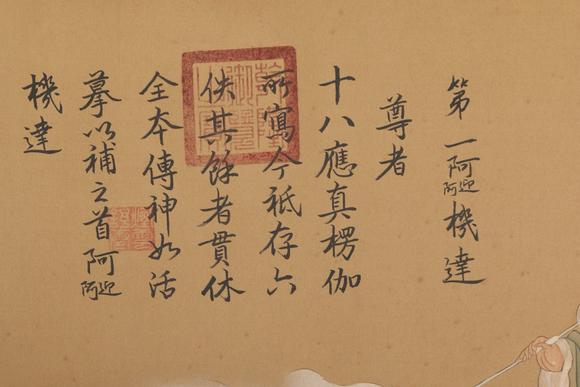 第一阿迎阿機達
尊者
十八應真楞伽
所寫今祗存六
佚其餘者貫休
全本傳神如活
摹以補之首阿迎阿
機達